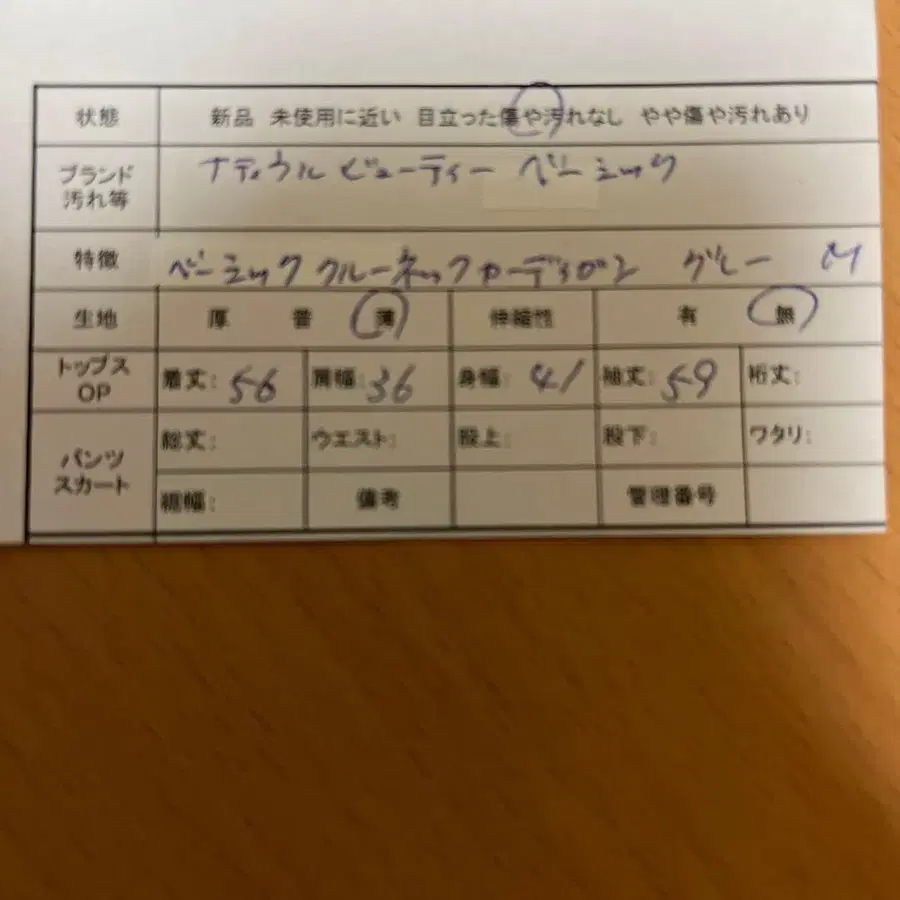 状態 新品 未使用に近い 目立った傷や汚れなし やや傷や汚れあり
ブランド 汚れ等 ナチュラル ビューティー ベーシック
特徴 ベーシック クルーネックカーディガン グレー M
生地 厚 普 薄 伸縮性 有 無
トップス OP 着丈: 56 肩幅: 36 身幅: 41 袖丈: 59 裄丈:
パンツ スカート 総丈: ウエスト: 股上: 股下: ワタリ:
裾幅: 備考 管理番号